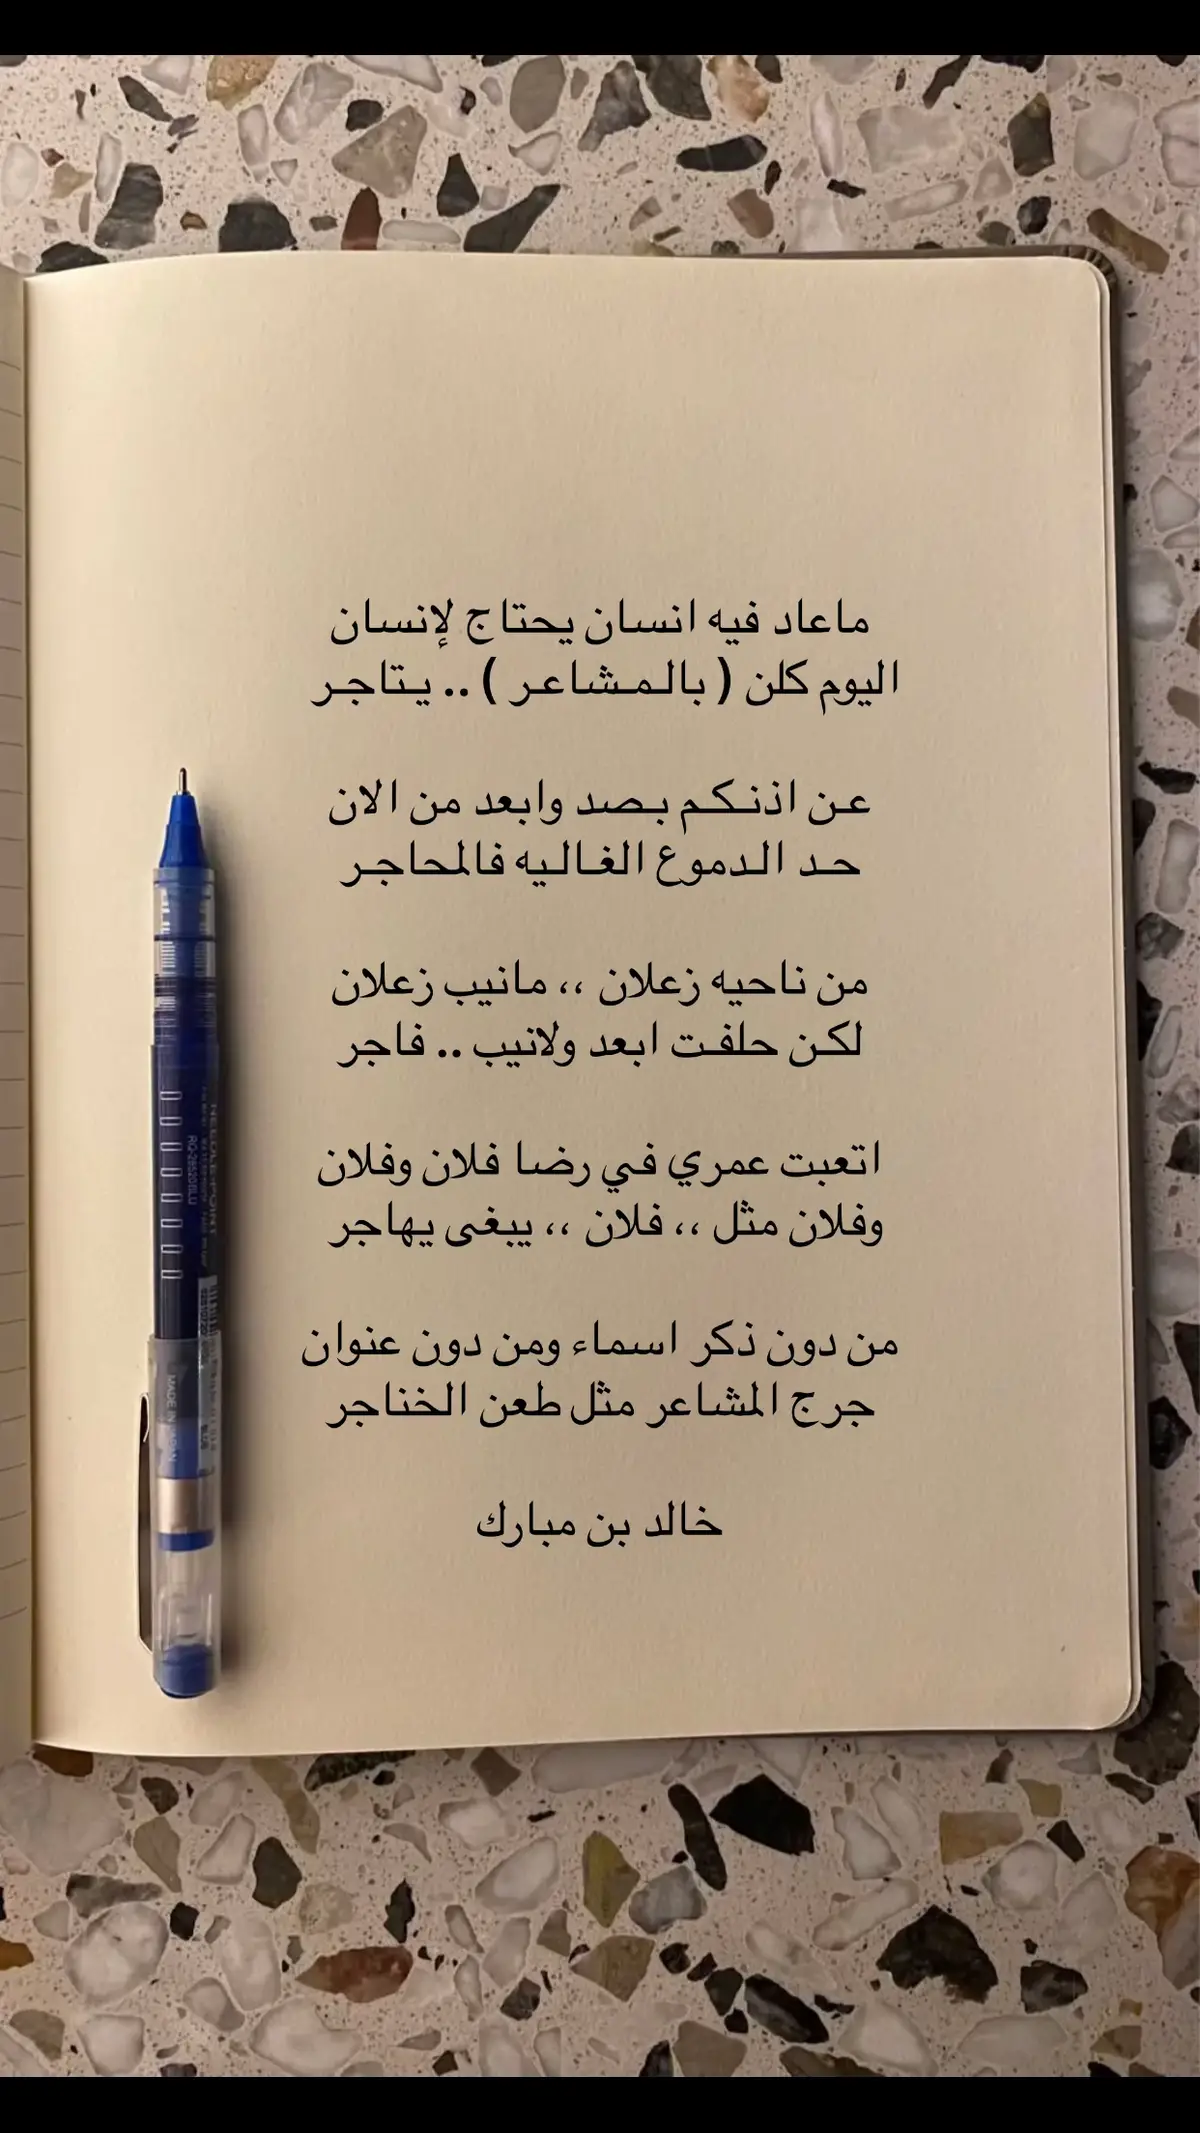 ماعاد فيه انسان يحتاج لإنسان
اليوم كلن ( بالـمـشاعـر ) .. يـتاجـر
عـن اذنـكـم بـصد وابعد من الان
حـد الـدموع الغـالـيه فالمحاجـر
من ناحيه زعلان ،، مانيب زعلان
لكـن حلفـت ابعد ولانيب .. فاجر
اتعبت عمري في رضا فلان وفلان
وفلان مثل ،، فلان ،، يبغى يهاجر
من دون ذكر اسماء ومن دون عنوان
جرج المشاعر مثل طعن الخناجر
خالد بن مبارك
NEEDLE-POINT
MADE IN JAPAN
BLUE